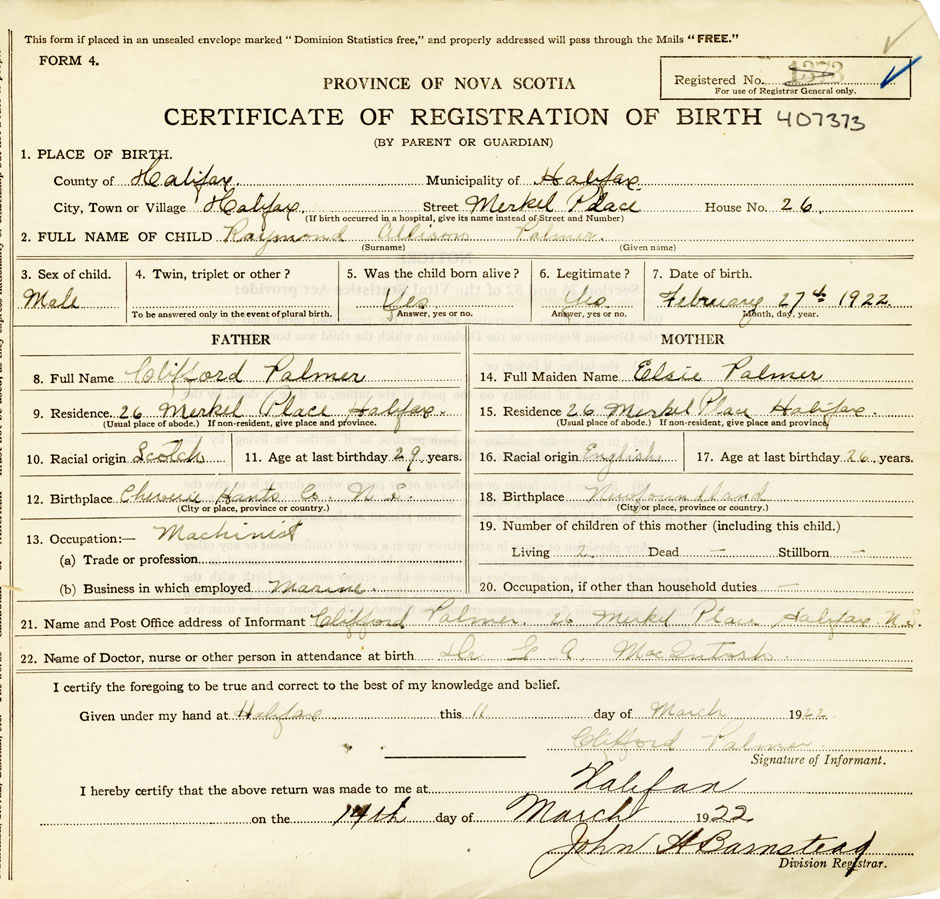 This form if placed in an unsealed envelope marked "Dominion Statistics free," and properly addressed will pass through the Mails "FREE."
FORM 4.
PROVINCE OF NOVA SCOTIA
Registered No.
For use of Registrar General only.
CERTIFICATE OF REGISTRATION OF BIRTH 407373
(BY PARENT OR GUARDIAN)
1. PLACE OF BIRTH.
County of Halifax. Municipality of Halifax
City, Town or Village Halifax. Street Merkel Place House No. 26.
(If birth occurred in a hospital, give its name instead of Street and Number)
2. FULL NAME OF CHILD Raymond Allison Palmer.
(Surname) (Given name)
3. Sex of child. 4. Twin, triplet or other? 5. Was the child born alive? 6. Legitimate? 7. Date of birth.
Male Yes Yes February 27th 1922.
To be answered only in the event of plural birth. Answer, yes or no. Answer, yes or no. Month, day, year.
FATHER MOTHER
8. Full Name Clifford Palmer 14. Full Maiden Name Elsie Palmer
9. Residence. 26 Merkel Place Halifax. 15. Residence 26 Merkel Place Halifax.
(Usual place of abode.) If non-resident, give place and province. (Usual place of abode.) If non-resident, give place and province.
10. Racial origin Scotch 11. Age at last birthday 29. years. 16. Racial origin English 17. Age at last birthday 26. years.
12. Birthplace Cheverie Hants Co. N.S. 18. Birthplace Newfoundland
(City or place, province or country.) (City or place, province or country.)
13. Occupation:— Machinist 19. Number of children of this mother (including this child.)
(a) Trade or profession Living 2. Dead — Stillborn —
(b) Business in which employed Marine. 20. Occupation, if other than household duties —
21. Name and Post Office address of Informant Clifford Palmer. 26 Merkel Place Halifax N.S.
22. Name of Doctor, nurse or other person in attendance at birth Dr. A. MacIntosh.
I certify the foregoing to be true and correct to the best of my knowledge and belief.
Given under my hand at Halifax this 11 day of March 1922
Clifford Palmer.
Signature of Informant.
I hereby certify that the above return was made to me at Halifax
on the 14th day of March 1922
John H Barnstead
Division Registrar.